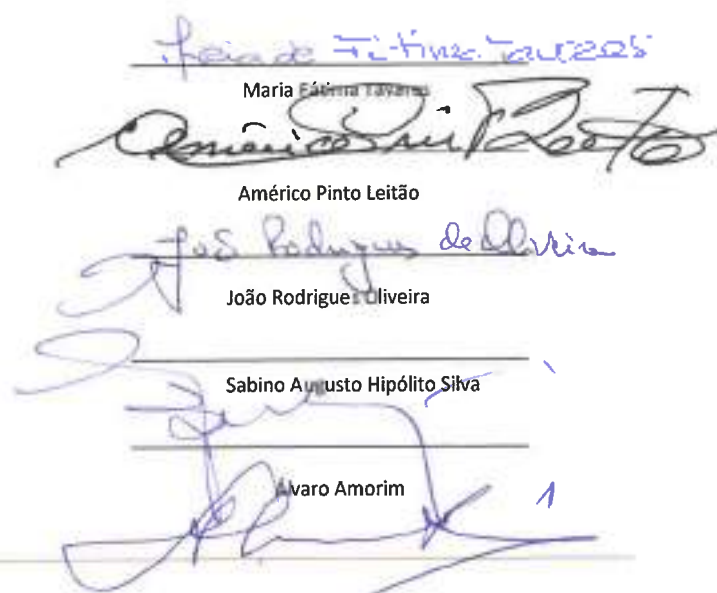 de Fátima Tavares
Maria Fátima Tavares
Américo Pinto Leitão
Américo Pinto Leitão
João Rodrigues de Oliveira
João Rodrigues Oliveira
Sabino Augusto Hipólito Silva
Álvaro Amorim